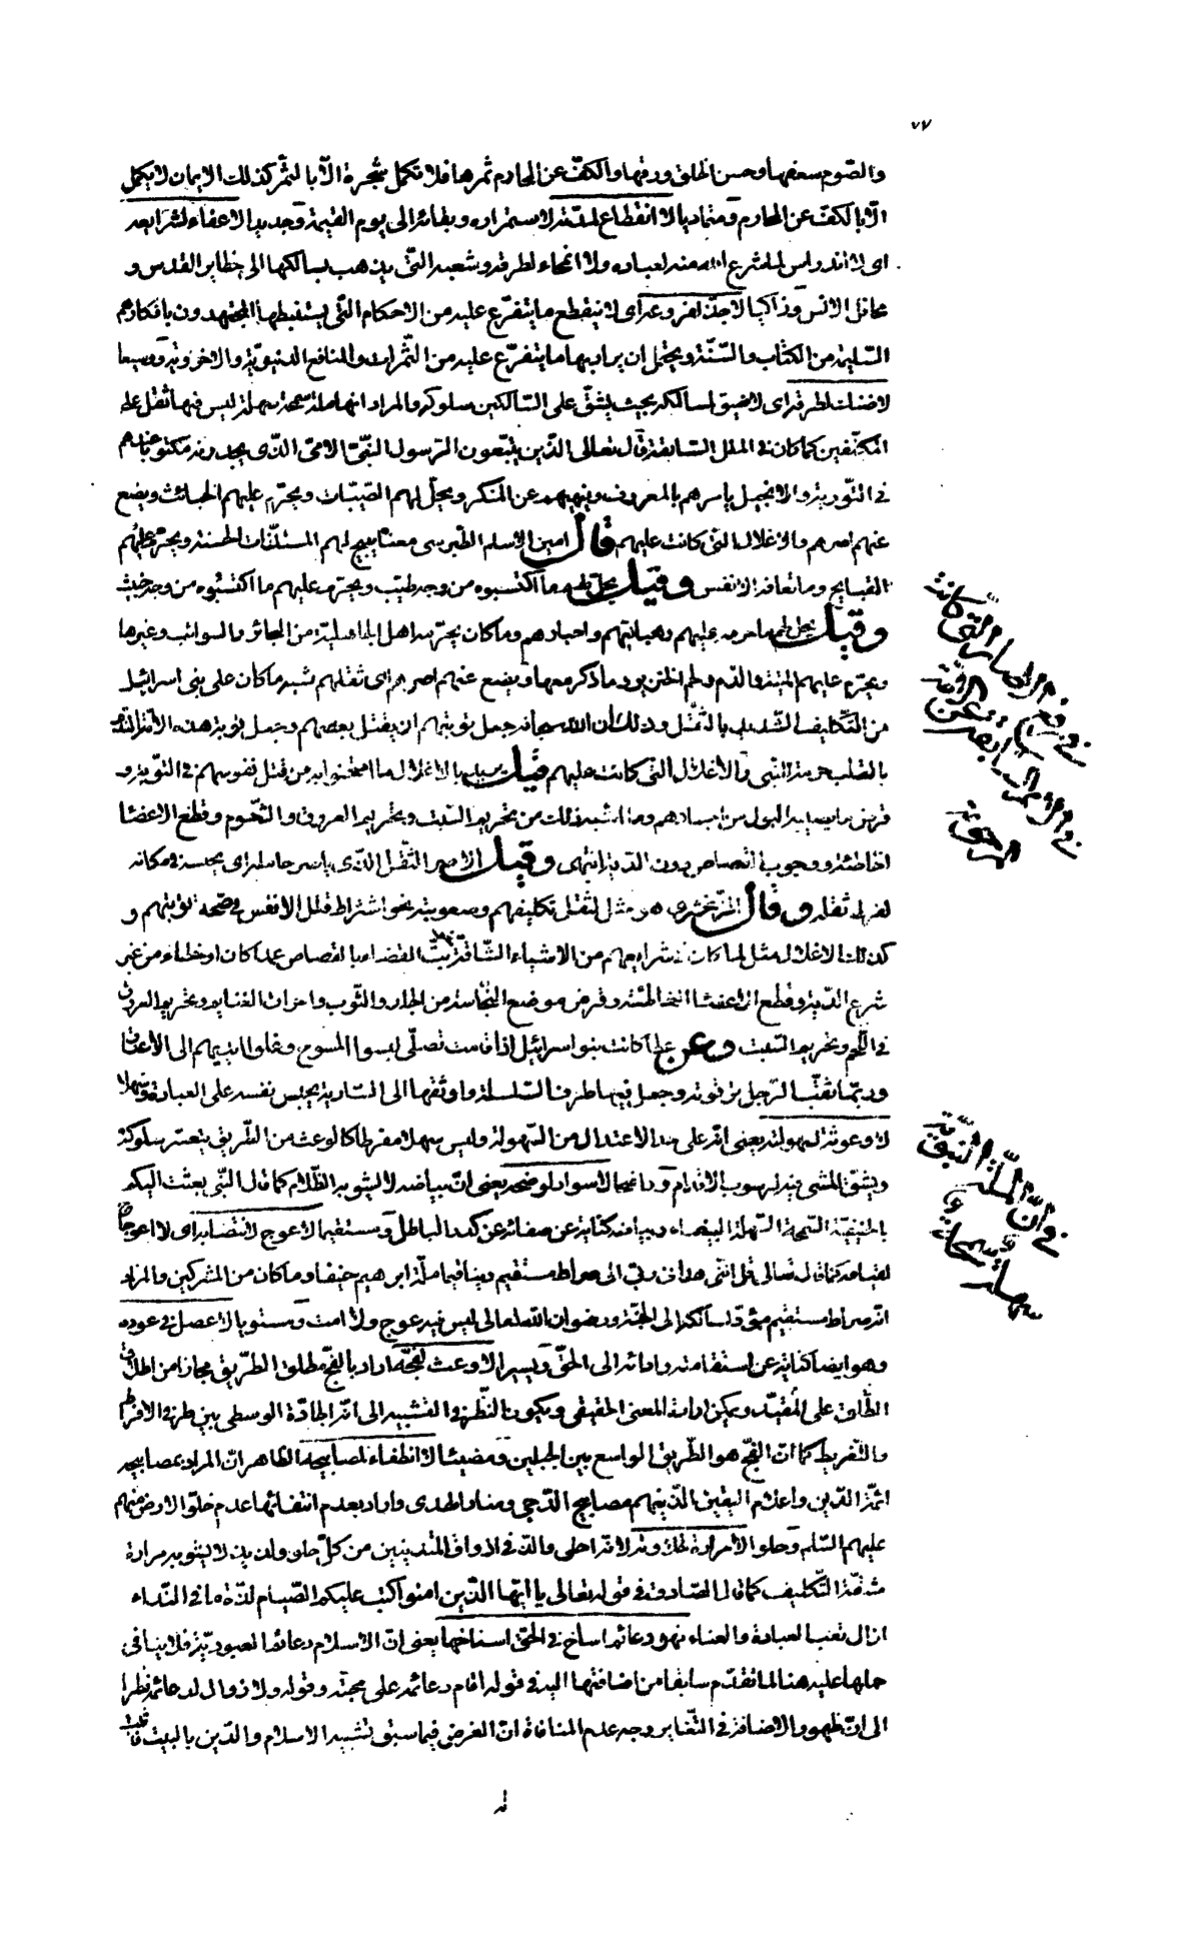 ٧٧
والصّوم سعفها وحسن الخلق ورقها والكفّ عن المحارم ثمرها فلا تكمل شجرة الّا بالثمر كذلك الايمان لا يكمل
الّا بالكفّ عن المحارم ومتماديا لا انقطاع لمدّته لاستمراره وبقائه الى يوم القيمة وجديدا لا عفاء لشرايعه
اى لا اندراس لما شرع الله منه لعباده ولا انمحاء لطرقه وشعبه التى يذهب بسالكها الى حظاير القدس و
محافل الانس وزاكيا لا جذّ لفروعه اى لا ينقطع ما يتفرّع عليه من الاحكام التى يستنبطها المجتهدون بافكارهم
السّليمة من الكتاب والسّنّة ويحتمل ان يراد بها ما يتفرّع عليه من الثّمرات والمنافع الدنيويّة والاخرويّة ووسيعا
لا ضنك لطرقه اى لا ضيق لمسالكه بحيث يشقّ على السّالكين سلوكه والمراد انها ملة سمحة سهلة ليس فيها ثقل على
المكلّفين كما كان فى الملل السّابقة قال تعالى الّذين يتّبعون الرّسول النّبىّ الامّى الّذى يجدونه مكتوبا عندهم
فى التّورية والانجيل يامرهم بالمعروف وينهيهم عن المنكر ويحلّ لهم الطّيّبات ويحرّم عليهم الخبائث ويضع
عنهم اصرهم والاغلال التى كانت عليهم قال امين الاسلام الطّبرسى معناه يبيح لهم المستلذّات الحسنة ويحرّم عليهم
القبايح وما تعافه الانفس وقيل يحلّ لهم ما اكتسبوه من وجه طيّب ويحرّم عليهم ما اكتسبوه من وجه خبيث
وقيل يحلّ لهم ما حرمه عليهم رهبانيّهم واحبارهم وما كان يحرّمه اهل الجاهليّة من البحائر والسوائب وغيرها
ويحرّم عليهم الميتة والدّم ولحم الخنزير وما ذكر معها ويضع عنهم اصرهم اى ثقلهم شبه ما كان على بنى اسرائيل
من التّكاليف الشّديدة بالثّقل وذلك ان الله سبحانه جعل توبتهم ان يقتل بعضهم وجعل توبة هذه الامّة النّدم
بالقلب حرمة للنّبى والاغلال التى كانت عليهم قيل يريد بالاغلال ما امتحنوا به من قتل نفوسهم فى التّوبة و
قرض ما يصيبه البول من اجسادهم وما اشبه ذلك من تحريم السّبت وتحريم العروق والشّحوم وقطع الاعضاء
الخاطئة ووجوب القصاص دون الدّية انتهى وقيل الاصر الثّقل الذى ياصر حامله اى يحبسه فى مكانه
لفرط ثقله وقال الزّمخشرى هو مثل لثقل تكليفهم وصعوبته نحو اشتراط قتل الانفس فى صحّة توبتهم و
كذلك الاغلال مثل لما كان فى شرايعهم من الاشياء الشّاقّة نحو بتّ القضاء بالقصاص عمدا كان او خطاء من غير
شرع الدّية وقطع الاعضاء الخاطئة وقرض موضع النّجاسة من الجلد والثّوب واحراق الغنايم وتحريم العروق
فى اللحم وتحريم السّبت وعن عطا كانت بنو اسرائيل اذا قامت تصلّى لبسوا المسوح وغلّوا ايديهم الى الاعناق
وربّما ثقب الرّجل ترقوته وجعل فيها طرف السّلسلة واوثقها الى السّارية يحبس نفسه على العبادة وسهلا
لا وعوثة لسهولته يعنى انّه على حدّ الاعتدال من السّهولة وليس سهلا مفرطا كالوعث من الطّريق يتعسّر سلوكه
ويشقّ المشى فيه لرسوب الاقدام وواضحا لا سواد لوضحه يعنى انّ بياضه لا يشوبه الظّلام كما قال النّبى بعثت اليكم
بالحنيفيّة السّمحة السّهلة البيضاء وبياضه كناية عن صفائه عن كدر الباطل ومستقيما لا عوج لانتصابه اى لا اعوجاج
لقيامه كما قال تعالى قل انّنى هدانى ربّى الى صراط مستقيم دينا قيما ملّة ابرهيم حنيفا وما كان من المشركين والمراد
انّه صراط مستقيم مؤدّ لسالكه الى الجنّة ورضوان الله تعالى ليس فيه عوج ولا امت ومستويا لا عصل فى عوده
وهو ايضا كناية عن استقامته وادائه الى الحقّ ويسيرا لا وعث لفجّه اراد بالفجّ مطلق الطّريق مجازا من اطلاق
المطلق على المقيّد ويمكن ارادة المعنى الحقيقى ويكون النّظر فى التشبيه الى انّه الجادّة الوسطى بين طرفى الافراط
والتّفريط كما انّ الفجّ هو الطّريق الواسع بين الجبلين ومضيئا لا انطفاء لمصابيحه الظاهر انّ المراد بمصابيحه
ائمّة الدّين واعلام اليقين الّذينهم مصابيح الدّجى ومنار الهدى واراد بعدم انتفائها عدم خلوّ الارض منهم
عليهم السّلم وحلوا لا مرارة لحلاوته لانه احلى والذّ فى اذواق المتديّنين من كلّ حلو ولذيذ لا يشوبه مرارة
مشقّة التّكليف كما قال الصّادق فى قوله تعالى يا ايّها الّذين امنوا كتب عليكم الصّيام لذّة ما فى النّداء
ازال تعب العبادة والعناء فهو دعائم اساخ فى الحقّ اسناخها يعنى انّ الاسلام دعائم العبوديّة فلا ينافى
حملها عليه هنا لما تقدّم سابقا من اضافتها اليه فى قوله اقام دعائمه على محبّته وقوله ولا زوال لدعائمه نظرا
الى انّ ظهور الاضافة فى التّغاير وجه عدم المنافاة انّ الغرض فيما سبق تشبيه الاسلام والدّين بالبيت
فى رفع الاصار التى كانت
فى الامم السابقة عن
المرحومة
فى انّ الملّة النّبويّة
سهلة سمحاء